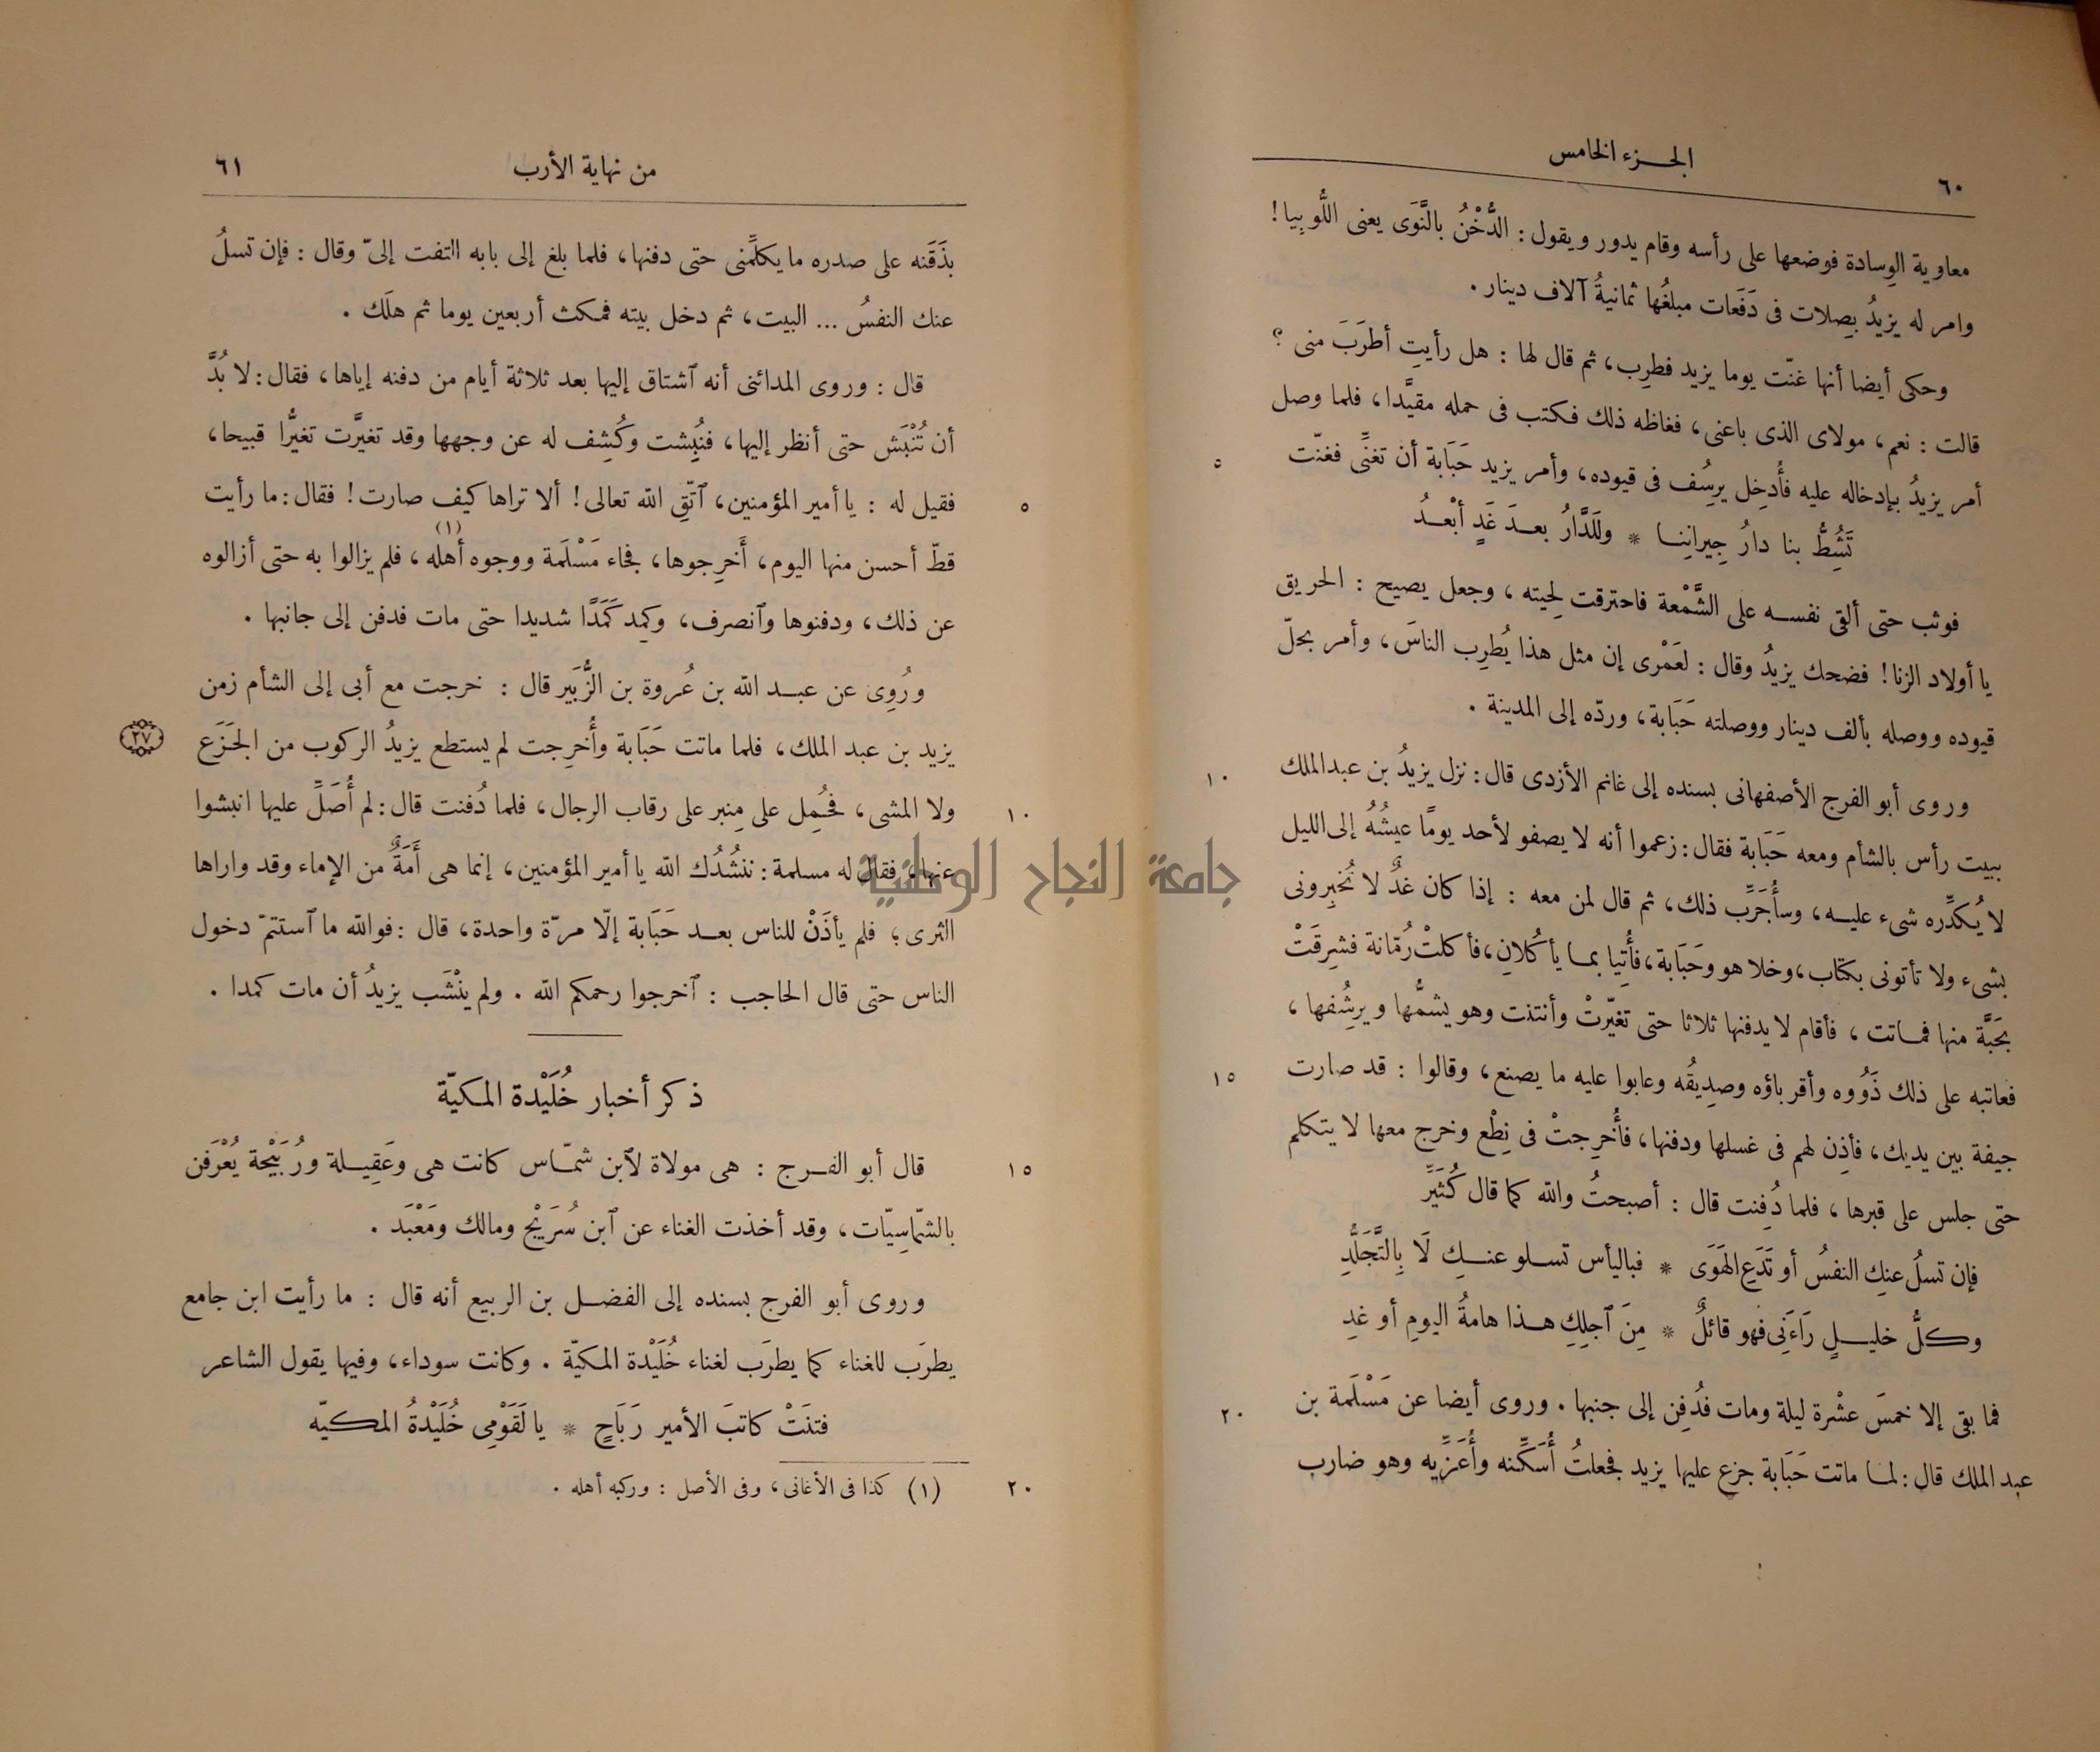 الجزء الخامس
٦٠
معاوية الوِسادة فوضعها على رأسه وقام يدور ويقول : الدُّخْنُ بالنَّوَى يعنى اللُّوبيا !
وامر له يزيدُ بِصِلات فى دَفَعَات مبلغُها ثمانيةُ آلاف دينار .
وحكى أيضا أنها غنّت يوما يزيد فطرِب، ثم قال لها : هل رأيتِ أطرَبَ منى ؟
قالت : نعم، مولاى الذى باعنى، فغاظه ذلك فكتب فى حمله مقيَّدا، فلما وصل
أمر يزيدُ بإدخاله عليه فأُدخِل يرسُف فى قيوده، وأمر يزيد حَبَابة أن تغنِّى فغنّت
٥
تَشُطُّ بنا دارُ جِيرانِنا * ولَلدَّارُ بعدَ غَدٍ أبْعدُ
فوثب حتى ألقى نفسه على الشَّمْعة فاحترقت لِحيته، وجعل يصيح : الحريق
يا أولاد الزنا ! فضحك يزيدُ وقال : لعَمْرى إن مثل هذا يُطرِب الناسَ، وأمر بحلّ
قيوده ووصله بألف دينار ووصلته حَبَابة، وردّه إلى المدينة .
وروى أبو الفرج الأصفهانى بسنده إلى غانم الأزدى قال : نزل يزيدُ بن عبدالملك
١٠
ببيت رأس بالشأم ومعه حَبَابة فقال : زعموا أنه لا يصفو لأحد يومًا عيشُهُ إلى الليل
لا يُكدِّره شىء عليه، وسأُجَرِّب ذلك، ثم قال لمن معه : إذا كان غدٌ لا تُخبِرونى
بشىء ولا تأتونى بكتاب، وخلا هو وحَبَابة، فأُتِيا بما يأكُلانِ، فأكلتْ رُمّانة فشرِقَتْ
بحَبَّة منها فماتت، فأقام لا يدفنها ثلاثا حتى تغيّرتْ وأنتنت وهو يشمُّها ويرشُفها،
فعاتبه على ذلك ذَوُوه وأقرباؤه وصديقُه وعابوا عليه ما يصنع، وقالوا : قد صارت
١٥
جيفة بين يديك، فأذِن لهم فى غسلها ودفنها، فأُخرِجتْ فى نِطْع وخرج معها لا يتكلم
حتى جلس على قبرها، فلما دُفِنت قال : أصبحتُ والله كما قال كُثَيِّر
فإن تسلُ عنكِ النفسُ أو تَدَعِ الهَوَى * فباليأس تسلو عنكِ لَا بِالتَّجَلُّدِ
وكلُّ خليلٍ رَاءَنِى فهو قائلٌ * مِنَ ٱجلِكِ هذا هامةُ اليومِ أو غدِ
فما بقى إلا خمسَ عشْرة ليلة ومات فدُفِن إلى جنبها . وروى أيضا عن مَسْلَمة بن
٢٠
عبد الملك قال : لما ماتت حَبَابة جزع عليها يزيد فجعلتُ أُسَكِّنه وأُعَزِّيه وهو ضارب
من نهاية الأرب
٦١
بذَقَنه على صدره ما يكلِّمنى حتى دفنها، فلما بلغ إلى بابه التفت إلىّ وقال : فإن تسلُ
عنك النفسُ ... البيت، ثم دخل بيته فمكث أربعين يوما ثم هلَك .
قال : وروى المدائنى أنه ٱشتاق إليها بعد ثلاثة أيام من دفنه إياها، فقال : لا بُدَّ
أن تُنْبَش حتى أنظر إليها، فنُبِشت وكُشِف له عن وجهها وقد تغيَّرت تغيُّرا قبيحا،
فقيل له : يا أمير المؤمنين، ٱتّقِ الله تعالى ! ألا تراها كيف صارت ! فقال : ما رأيت
٥
قطّ أحسن منها اليوم، أَخرِجوها، فجاء مَسْلَمة ووجوه أهله (١)، فلم يزالوا به حتى أزالوه
عن ذلك، ودفنوها وٱنصرف، وكمِد كَمَدًا شديدا حتى مات فدفن إلى جانبها .
ورُوِى عن عبد الله بن عُروة بن الزُّبَير قال : خرجت مع أبى إلى الشأم زمن
يزيد بن عبد الملك، فلما ماتت حَبَابة وأُخرِجت لم يستطع يزيدُ الركوب من الجَزَع
٢٧
ولا المشى، فحُمِل على مِنبر على رقاب الرجال، فلما دُفنت قال : لم أُصَلِّ عليها انبشوا
١٠
عنها، فقال له مسلمة : ننشُدُك الله يا أمير المؤمنين، إنما هى أَمَةٌ من الإماء وقد واراها
الثرى؛ فلم يأذَنْ للناس بعد حَبَابة إلّا مرّة واحدة، قال : فوالله ما ٱستتمّ دخول
الناس حتى قال الحاجب : ٱخرجوا رحمكم الله . ولم ينْشَب يزيدُ أن مات كمدا .
ذكر أخبار خُلَيْدة المكيّة
قال أبو الفرج : هى مولاة لٱبن شمّاس كانت هى وعَقِيلة ورُبَيْحة يُعْرَفن
١٥
بالشمّاسِيّات، وقد أخذت الغناء عن ٱبن سُرَيْج ومالك ومَعْبَد .
وروى أبو الفرج بسنده إلى الفضل بن الربيع أنه قال : ما رأيت ابن جامع
يطرَب للغناء كما يطرَب لغناء خُلَيْدة المكيّة . وكانت سوداء، وفيها يقول الشاعر
فتنَتْ كاتبَ الأمير رَبَاحٍ * يا لَقَوْمِى خُلَيْدةُ المكيّه
(١) كذا فى الأغانى، وفى الأصل : وركبه أهله .
٢٠
جامعة النجاح الوطنية